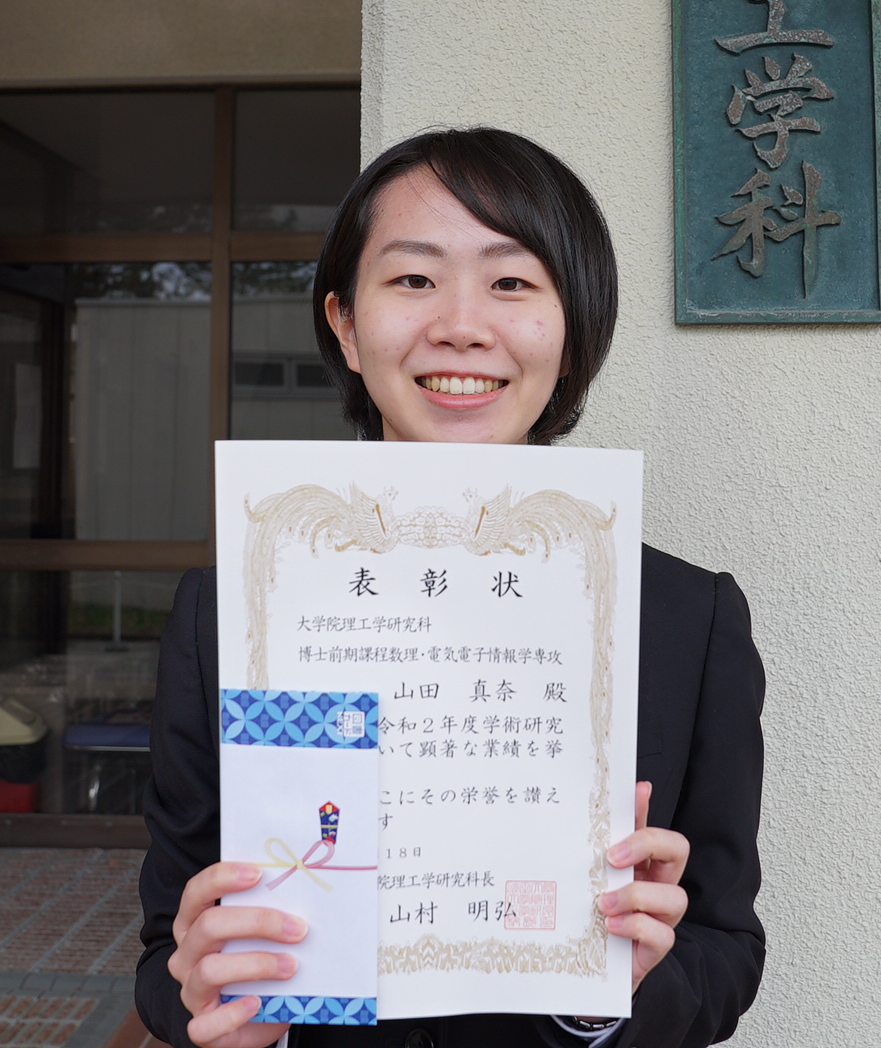 工学科
表彰状
大学院理工学研究科
博士前期課程数理・電気電子情報学専攻
山田 真奈 殿
令和2年度学術研究
いて顕著な業績を挙
こにその栄誉を讃え
す
18日
院理工学研究科長
山村 明弘